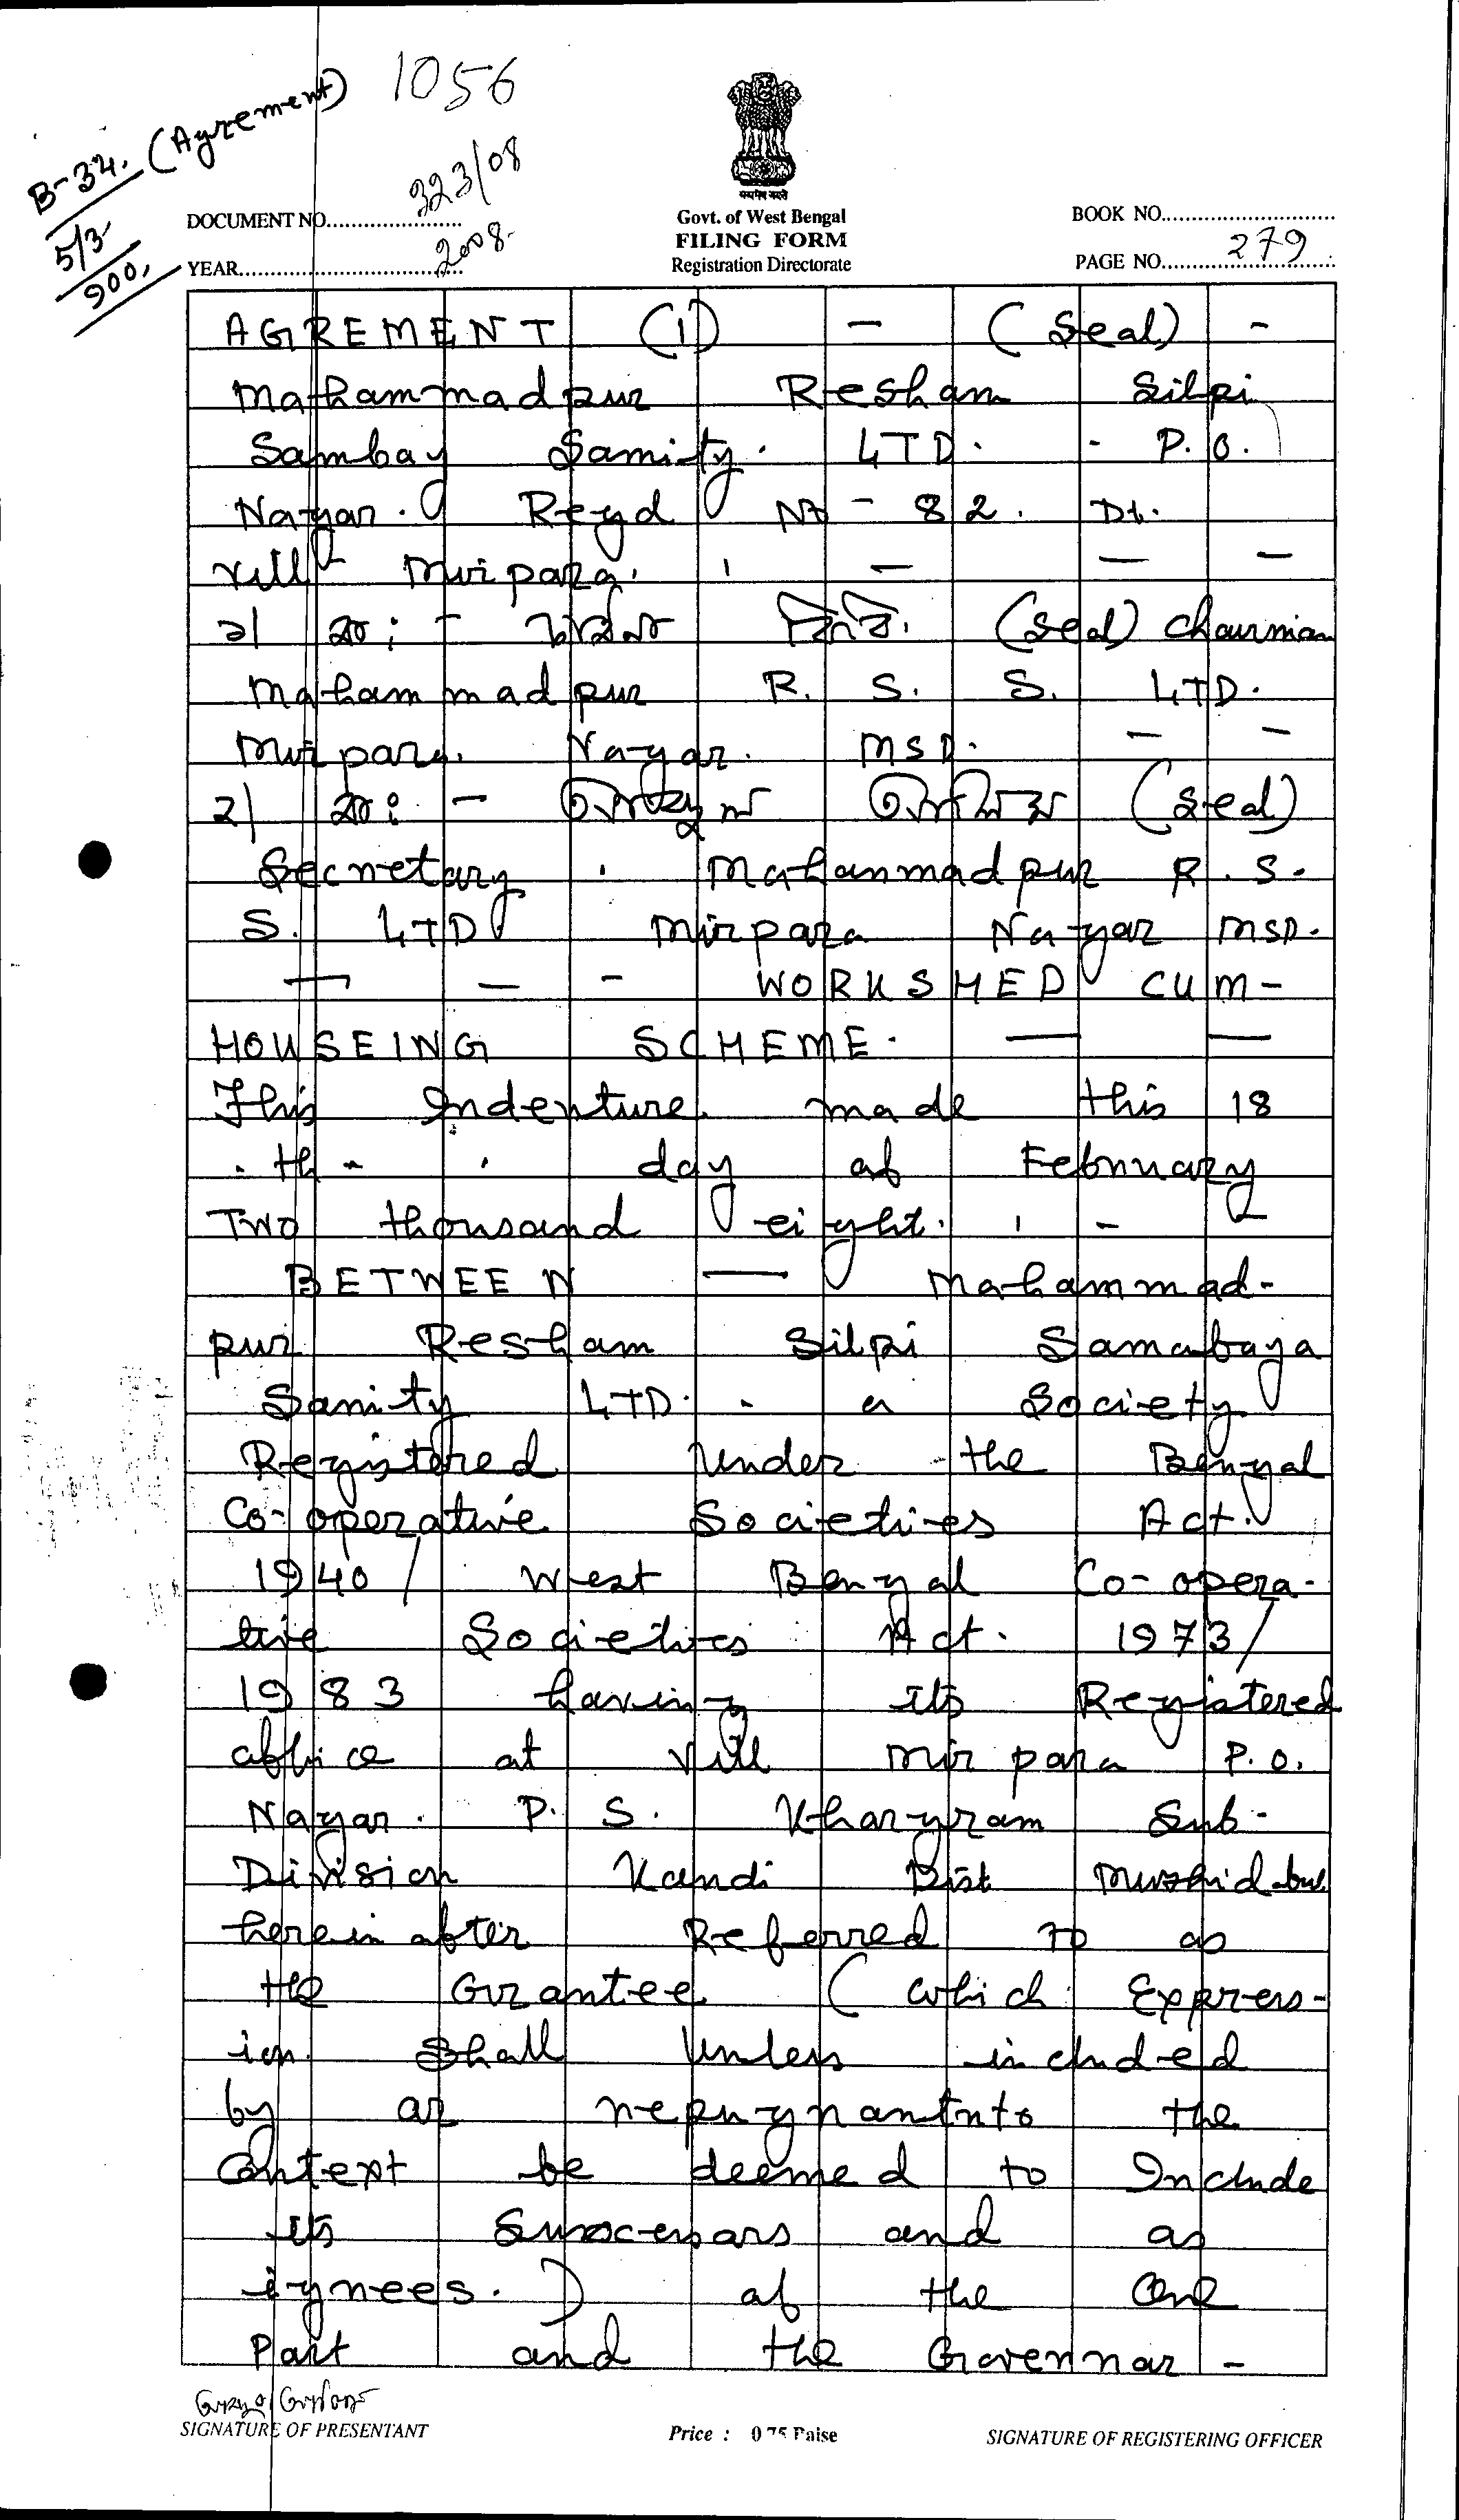 1056
B-34. (Agrement)
5/3
900,
323/08
DOCUMENT NO.
2008.
YEAR
सत्यमेव जयते
Govt. of West Bengal
FILING FORM
Registration Directorate
BOOK NO.
PAGE NO. 279
AGREMENT (1) - (Seal) -
Mahammadpur Resham Silpi
Sambay Samity. LTD. - P.O.
Nagar. Regd No - 82. Dt.
vill - Mirpara. - - -
১| স্বাঃ - (seal) Chairman
Mahammadpur R. S. S. LTD.
Mirpara. Nagar. MSD. - -
২| স্বাঃ - (seal)
Secretary. Mahammadpur R. S.
S. LTD Mirpara Nagar MSD.
- - - WORKSHED CUM-
HOUSEING SCHEME. - -
This Indenture made this 18
- th - day of February
Two thousand eight. -
BETWEEN - Mahammad-
pur Resham Silpi Samabaya
Samity LTD. - a Society
Registered Under the Bengal
Co-operative Societies Act.
1940/ West Bengal Co-opera-
tive Societies Act. 1973/
1983 having its Registered
office at vill Mirpara P.O.
Nagar. P. S. Khargram Sub-
Division Kandi Dist Murshidabad
herein after Referred to as
the Grantee (which Express-
ion shall Unless included
by or repugnantnto the
Context be deemed to Include
its Successors and as
ignees.) of the One
Part and the Governnar -
SIGNATURE OF PRESENTANT
Price : 0.75 Paise
SIGNATURE OF REGISTERING OFFICER